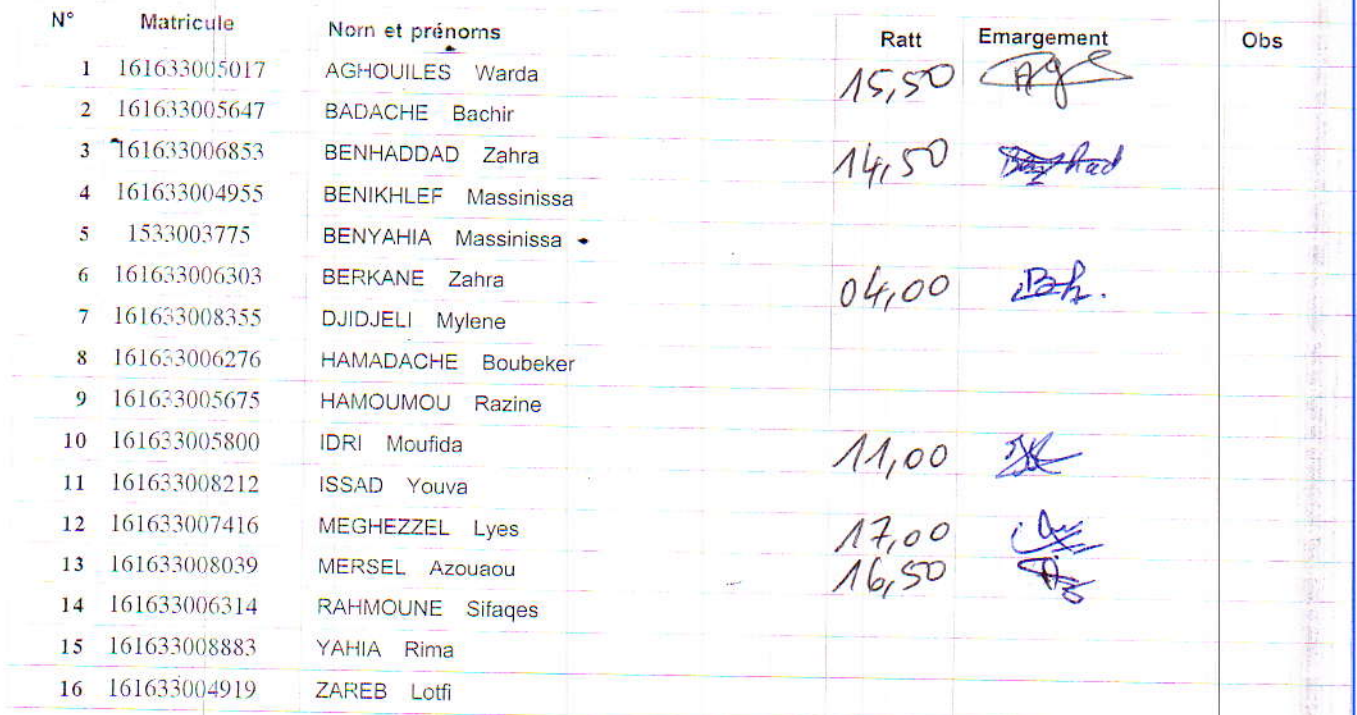 N° Matricule Nom et prénoms Ratt Emargement Obs
1 161633005017 AGHOUILES Warda 15,50
2 161633005647 BADACHE Bachir
3 161633006853 BENHADDAD Zahra 14,50
4 161633004955 BENIKHLEF Massinissa
5 1533003775 BENYAHIA Massinissa
6 161633006303 BERKANE Zahra 04,00
7 161633008355 DJIDJELI Mylene
8 161633006276 HAMADACHE Boubeker
9 161633005675 HAMOUMOU Razine
10 161633005800 IDRI Moufida 11,00
11 161633008212 ISSAD Youva
12 161633007416 MEGHEZZEL Lyes 17,00
13 161633008039 MERSEL Azouaou 16,50
14 161633006314 RAHMOUNE Sifaqes
15 161633008883 YAHIA Rima
16 161633004919 ZAREB Lotfi